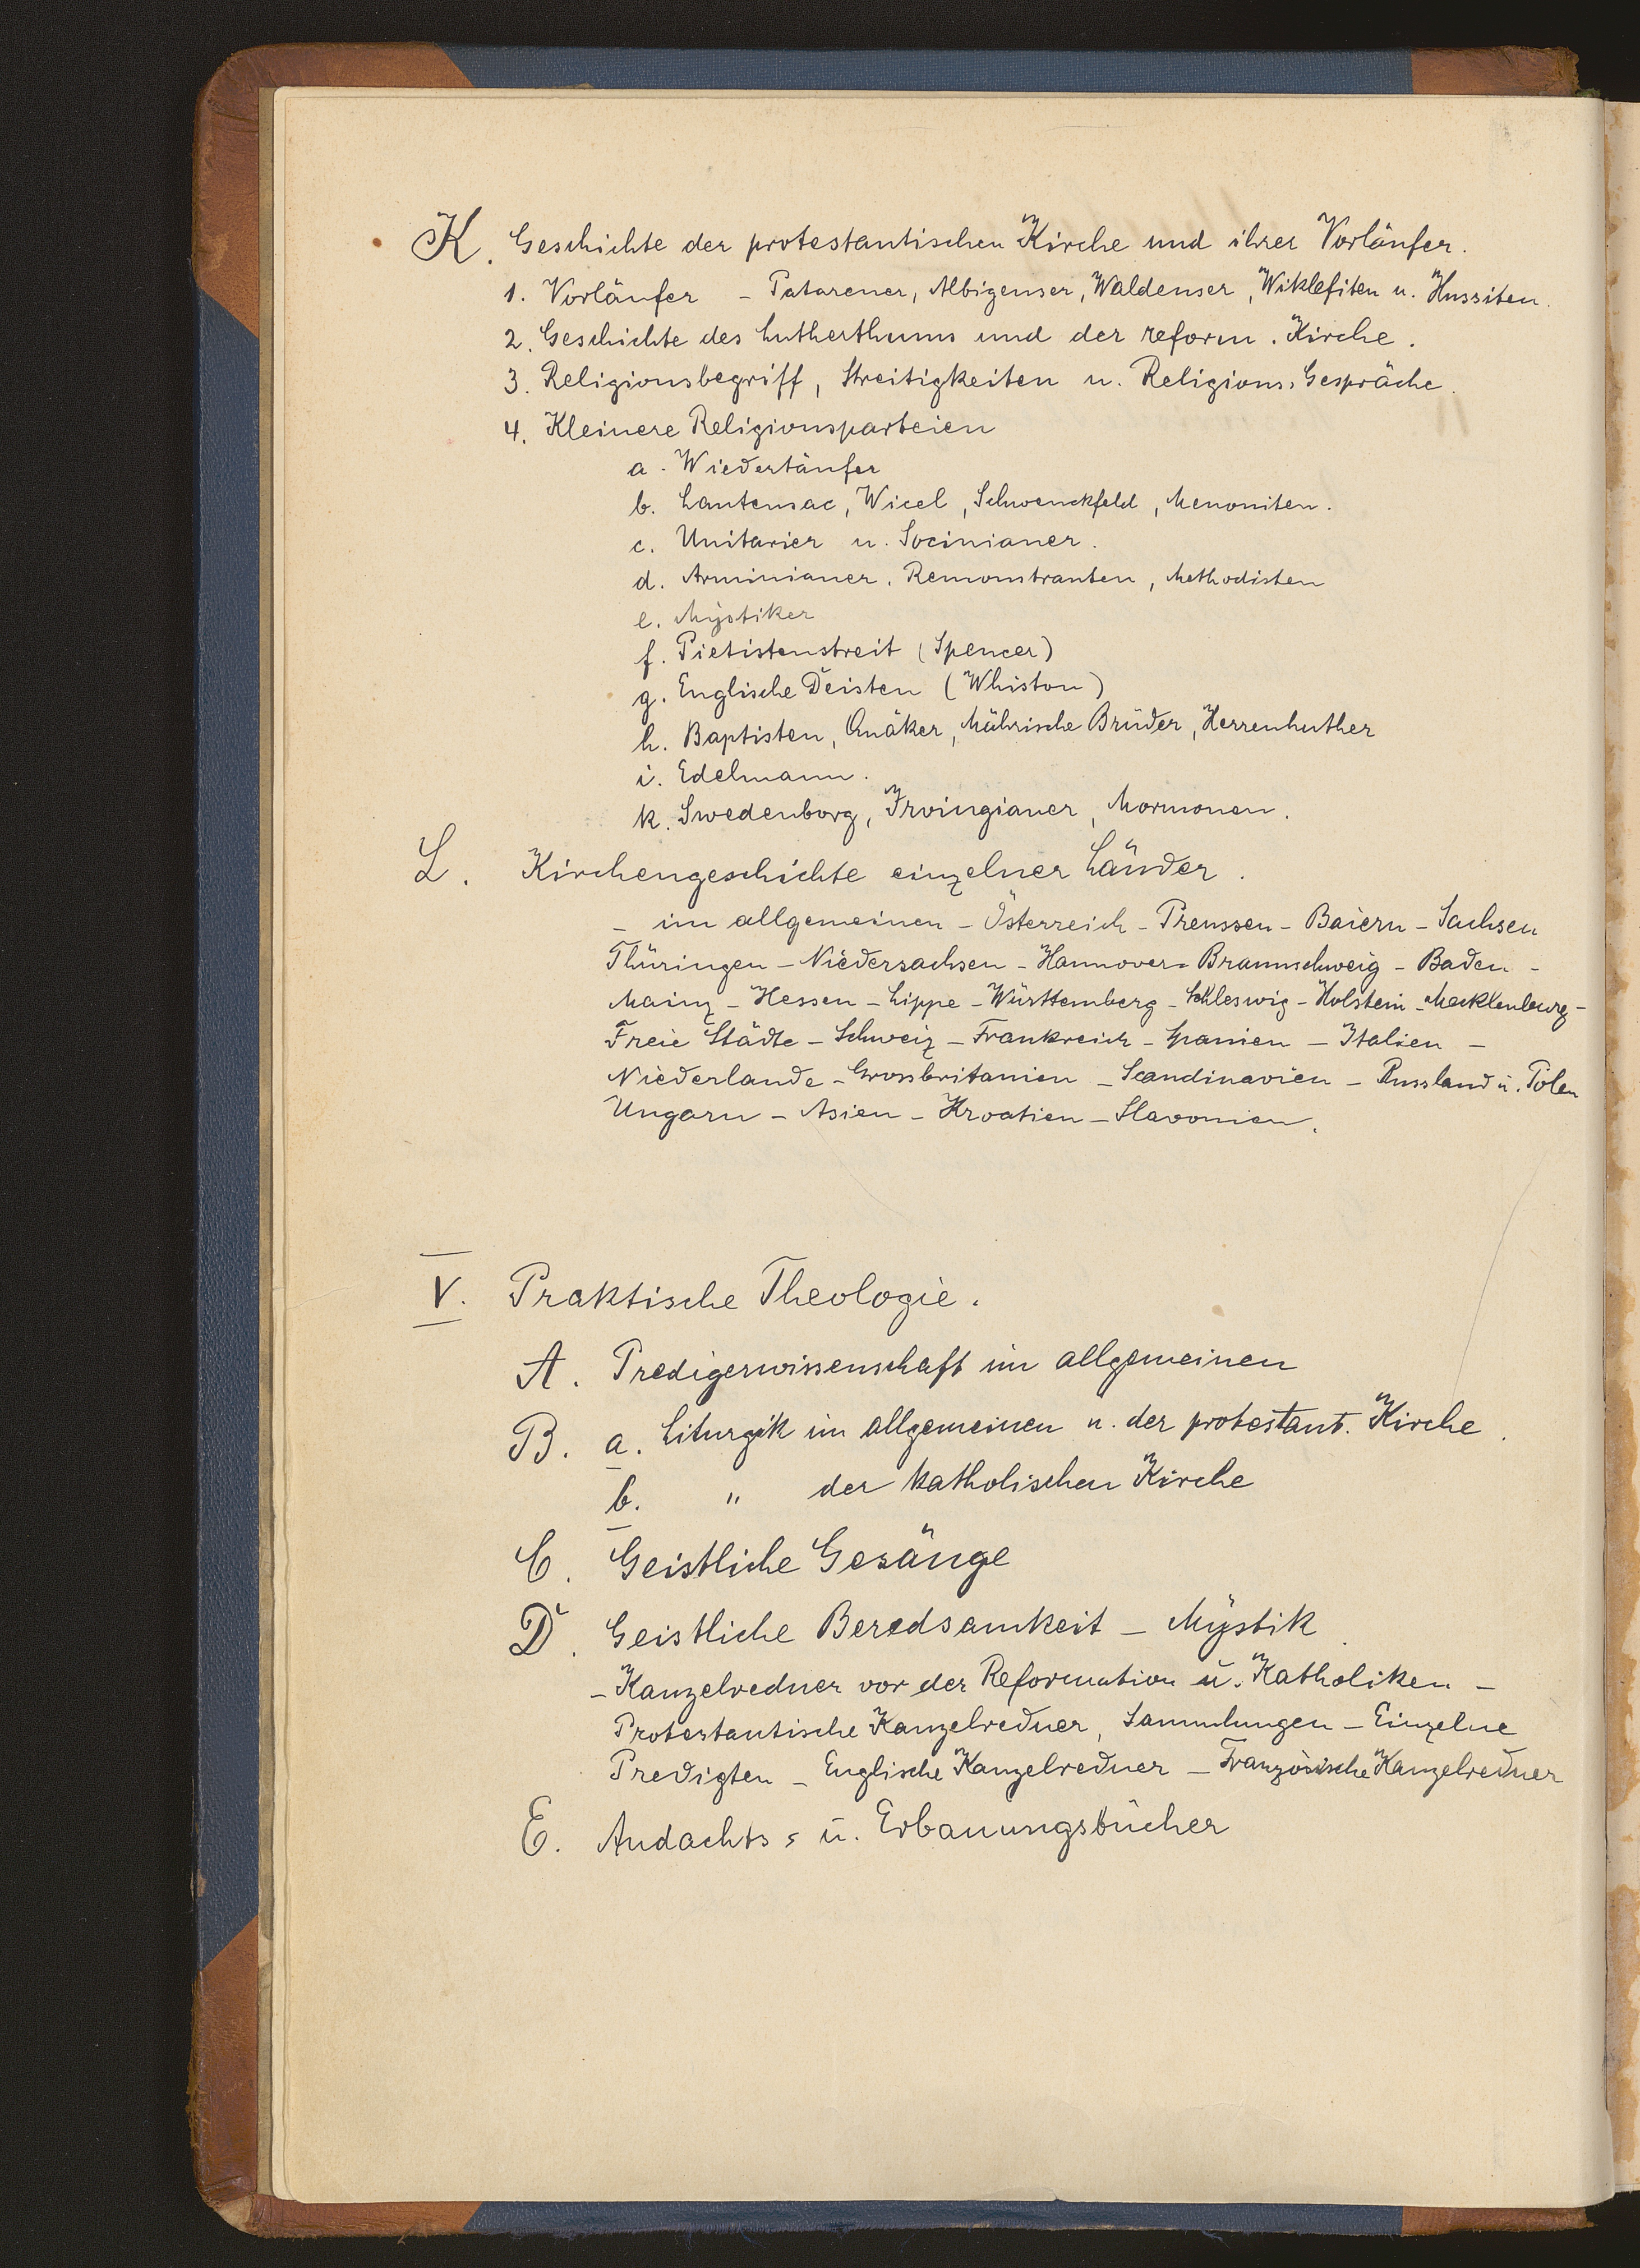 K. Geschichte der protestantischen Kirche und ihrer Vorläufer.
1. Vorläufer - Patarener, Albigenser, Waldenser, Wiklefiten u. Hussiten.
2. Geschichte des Lutherthums und der reform. Kirche.
3. Religionsbegriff, Streitigkeiten u. Religions-Gespräche.
4. Kleinere Religionsparteien
a. Wiedertäufer
b. Lautensac, Wicel, Schwenckfeld, Menoniten.
c. Unitarier u. Socinianer.
d. Arminianer, Remonstranten, Methodisten
e. Mÿstiker
f. Pietistenstreit (Spencer)
g. Englische Deisten (Whiston)
h. Baptisten, Quäker, Mährische Brüder, Herrenhuther
i. Edelmann.
k. Swedenborg, Irvingianer, Mormonen.
L. Kirchengeschichte einzelner Länder.
- im allgemeinen - Österreich - Preussen - Baiern - Sachsen
Thüringen - Niedersachsen - Hannover - Braunschweig - Baden -
Mainz - Hessen - Lippe - Württemberg - Schleswig - Holstein - Mecklenburg -
Freie Städte - Schweiz - Frankreich - Spanien - Italien -
Niederlande - Grossbritanien - Scandinavien - Russland u. Polen
Ungarn - Asien - Kroatien - Slavonien.
V. Praktische Theologie.
A. Predigerwissenschaft im allgemeinen
B. a. Liturgik im allgemeinen u. der protestant. Kirche.
b. " der katholischen Kirche
C. Geistliche Gesänge
D. Geistliche Beredsamkeit - Mÿstik.
- Kanzelredner vor der Reformation u. Katholiken -
Protestantische Kanzelredner, Sammlungen - Einzelne
Predigten - Englische Kanzelredner - Französische Kanzelredner
E. Andachts- u. Erbauungsbücher